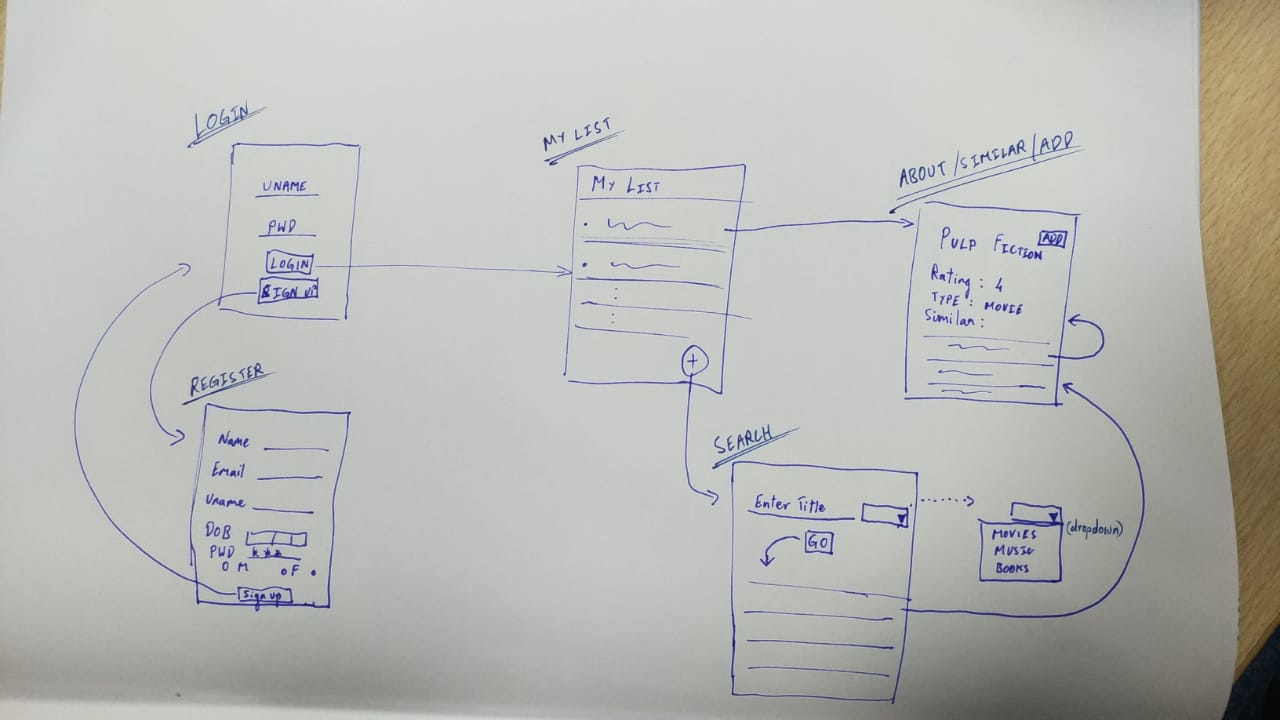 LOGIN
UNAME
PWD
LOGIN
SIGN UP
REGISTER
Name
Email
Uname
DOB
PWD ***
M F
Sign up
MY LIST
MY LIST
+
ABOUT/SIMILAR/ADD
PULP FICTION ADD
Rating : 4
TYPE : MOVIE
Similar :
SEARCH
Enter Title
GO
(dropdown)
MOVIES
MUSIC
BOOKS